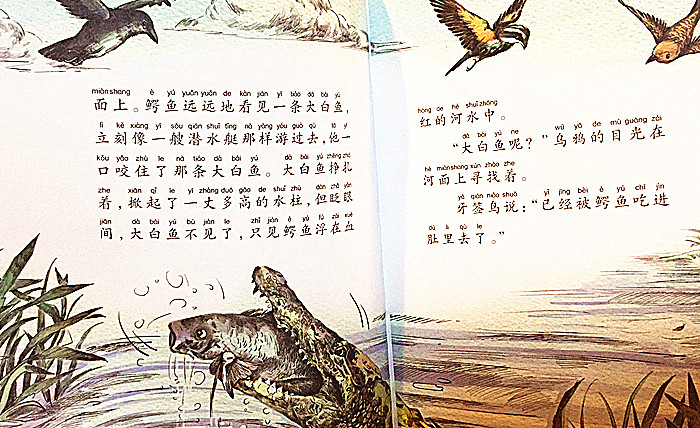 miàn shang è yú yuǎn yuǎn de kàn jiàn yī tiáo dà bái yú
面上。鳄鱼远远地看见一条大白鱼，
lì kè xiàng yī sōu qián shuǐ tǐng nà yàng yóu guò qù tā yī
立刻像一艘潜水艇那样游过去，他一
kǒu yǎo zhù le nà tiáo dà bái yú dà bái yú zhēng zhá
口咬住了那条大白鱼。大白鱼挣扎
zhe xiān qǐ le yī zhàng duō gāo de shuǐ zhù dàn zhǎ yǎn
着，掀起了一丈多高的水柱，但眨眼
jiān dà bái yú bù jiàn le zhǐ jiàn è yú fú zài xuè
间，大白鱼不见了，只见鳄鱼浮在血
hóng de hé shuǐ zhōng
红的河水中。
dà bái yú ne wū yā de mù guāng zài
“大白鱼呢？”乌鸦的目光在
hé miàn shang xún zhǎo zhe
河面上寻找着。
yá qiān niǎo shuō yǐ jīng bèi è yú chī jìn
牙签鸟说：“已经被鳄鱼吃进
dù li qù le
肚里去了。”